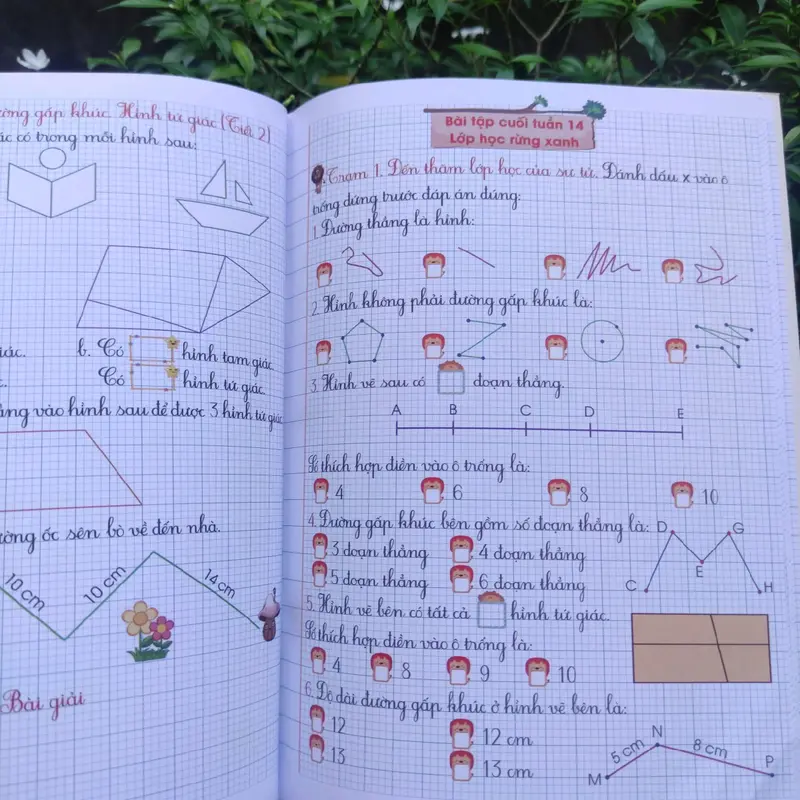 ường gấp khúc. Hình tứ giác (Tiết 2)
ác có trong mỗi hình sau:
b. Có hình tam giác
Có hình tứ giác
ẳng vào hình sau để được 3 hình tứ giác
ường ốc sên bò về đến nhà.
10 cm
10 cm
14 cm
Bài giải
Bài tập cuối tuần 14
Lớp học rừng xanh
Trạm 1. Đến thăm lớp học của sư tử. Đánh dấu x vào ô
trống đứng trước đáp án đúng:
1. Đường thẳng là hình:
2. Hình không phải đường gấp khúc là:
3. Hình vẽ sau có đoạn thẳng.
A B C D E
Số thích hợp điền vào ô trống là:
4 6 8 10
4. Đường gấp khúc bên gồm số đoạn thẳng là:
3 đoạn thẳng 4 đoạn thẳng
5 đoạn thẳng 6 đoạn thẳng
D G
E
C H
5. Hình vẽ bên có tất cả hình tứ giác.
Số thích hợp điền vào ô trống là:
4 8 9 10
6. Độ dài đường gấp khúc ở hình vẽ bên là:
12 12 cm
13 13 cm
N
5 cm 8 cm
M P